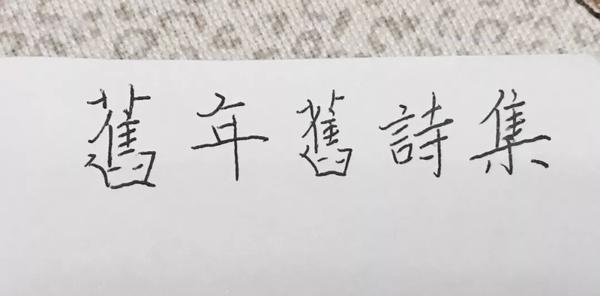 舊年舊詩集